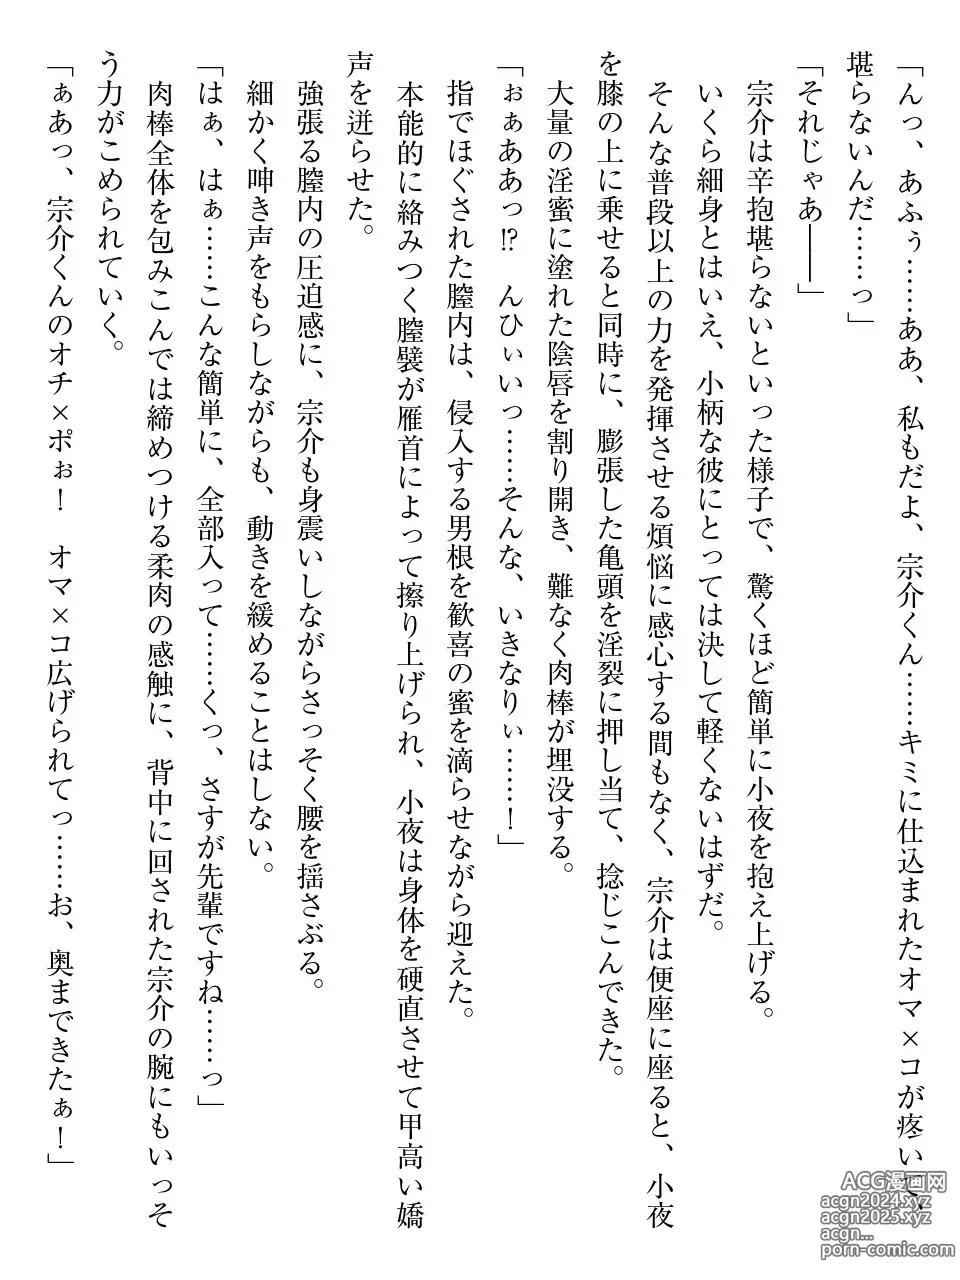 「んっ、あふぅ……ああ、私もだよ、宗介くん……キミに仕込まれたオマ×コが疼いて、
堪らないんだ……っ」
「それじゃあ――」
宗介は辛抱堪らないといった様子で、驚くほど簡単に小夜を抱え上げる。
いくら細身とはいえ、小柄な彼にとっては決して軽くないはずだ。
そんな普段以上の力を発揮させる煩悩に感心する間もなく、宗介は便座に座ると、小夜
を膝の上に乗せると同時に、膨張した亀頭を淫裂に押し当て、捻じこんできた。
大量の淫蜜に塗れた陰唇を割り開き、難なく肉棒が埋没する。
「ぉぁああっ!?　んひぃいっ……そんな、いきなりぃ……！」
指でほぐされた膣内は、侵入する男根を歓喜の蜜を滴らせながら迎えた。
本能的に絡みつく膣襞が雁首によって擦り上げられ、小夜は身体を硬直させて甲高い嬌
声を迸らせた。
強張る膣内の圧迫感に、宗介も身震いしながらさっそく腰を揺さぶる。
細かく呻き声をもらしながらも、動きを緩めることはしない。
「はぁ、はぁ……こんな簡単に、全部入って……くっ、さすが先輩ですね……っ」
肉棒全体を包みこんでは締めつける柔肉の感触に、背中に回された宗介の腕にもいっそ
う力がこめられていく。
「ぁあっ、宗介くんのオチ×ポぉ！　オマ×コ広げられてっ……お、奥まできたぁ！」
ACG漫画网
acgn2024.xyz
acgn2025.xyz
acgn...
porn-comic.com